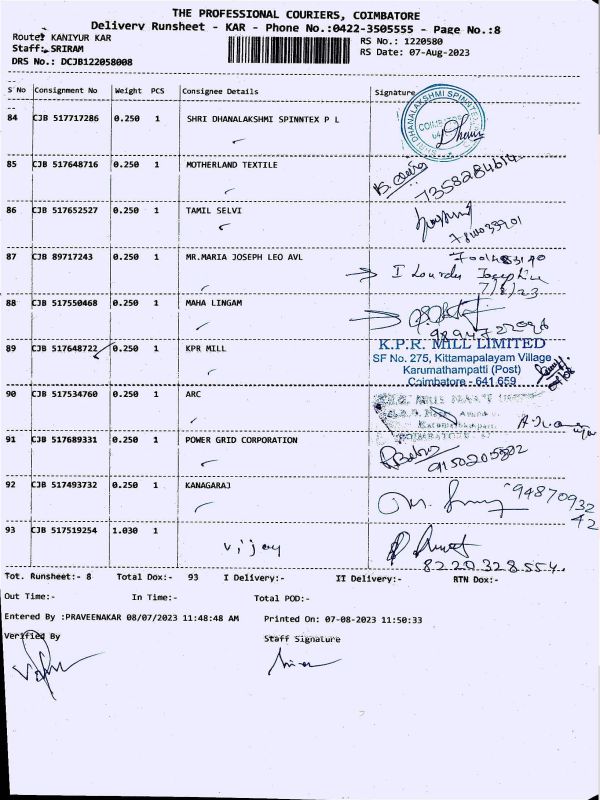 THE PROFESSIONAL COURIERS, COIMBATORE
Delivery Runsheet - KAR - Phone No.:0422-3505555 - Page No.:8
Route: KANIYUR KAR
RS No.: 1220580
Staff: SRIRAM
RS Date: 07-Aug-2023
DRS No.: DCJB122058008
S No Consignment No Weight PCS Consignee Details Signature
84 CJB 517717286 0.250 1 SHRI DHANALAKSHMI SPINNTEX P L
85 CJB 517648716 0.250 1 MOTHERLAND TEXTILE
7358284614
86 CJB 517652527 0.250 1 TAMIL SELVI
87 CJB 89717243 0.250 1 MR.MARIA JOSEPH LEO AVL
I Lourdu
7/8/23
88 CJB 517550468 0.250 1 MAHA LINGAM
89 CJB 517648722 0.250 1 KPR MILL
K.P.R. MILL LIMITED
SF No. 275, Kittamapalayam Village
Karumathampatti (Post)
Coimbatore - 641 659
90 CJB 517534760 0.250 1 ARC
91 CJB 517689331 0.250 1 POWER GRID CORPORATION
92 CJB 517493732 0.250 1 KANAGARAJ
9487093242
93 CJB 517519254 1.030 1 Vijay
8220328554
Tot. Runsheet:- 8 Total Dox:- 93 I Delivery:- II Delivery:- RTN Dox:-
Out Time:- In Time:- Total POD:-
Entered By :PRAVEENAKAR 08/07/2023 11:48:48 AM Printed On: 07-08-2023 11:50:33
Verified By Staff Signature